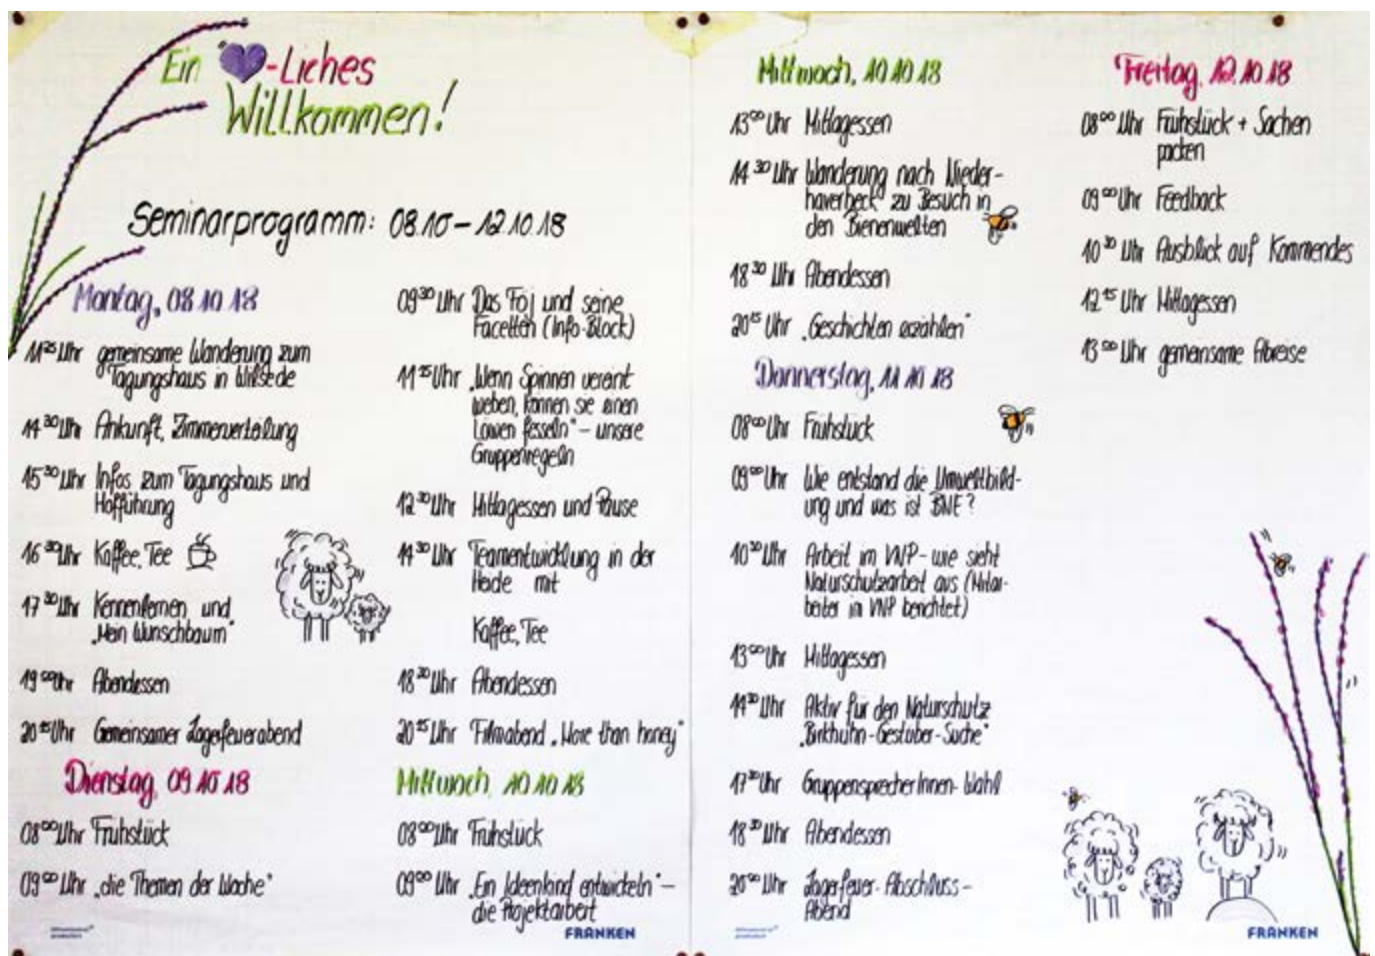 Ein -Liches
Willkommen!
Seminarprogramm: 08.10 - 12.10.18
Montag, 08.10.18
11²⁵ Uhr gemeinsame Wanderung zum
Tagungshaus in Wilsede
14³⁰ Uhr Ankunft, Zimmerverteilung
15³⁰ Uhr Infos zum Tagungshaus und
Hofführung
16³⁰ Uhr Kaffee, Tee
17³⁰ Uhr Kennenlernen und
„Mein Wunschbaum"
19⁰⁰ Uhr Abendessen
20¹⁵ Uhr Gemeinsamer Lagerfeuerabend
Dienstag, 09.10.18
08⁰⁰ Uhr Frühstück
09⁰⁰ Uhr „die Themen der Woche"
09³⁰ Uhr Das Föj und seine
Facetten (Info-Block)
11¹⁵ Uhr „Wenn Spinnen vereint
weben, können sie einen
Löwen fesseln" - unsere
Gruppenregeln
12³⁰ Uhr Mittagessen und Pause
14³⁰ Uhr Teamentwicklung in der
Heide mit
Kaffee, Tee
18³⁰ Uhr Abendessen
20¹⁵ Uhr Filmabend „More than honey"
Mittwoch, 10.10.18
08⁰⁰ Uhr Frühstück
09⁰⁰ Uhr „Ein Ideenkind entwickeln" -
die Projektarbeit
FRANKEN
Mittwoch, 10.10.18
13⁰⁰ Uhr Mittagessen
14³⁰ Uhr Wanderung nach Nieder-
haverbeck zu Besuch in
den Bienenwelten
18³⁰ Uhr Abendessen
20¹⁵ Uhr „Geschichten erzählen"
Donnerstag, 11.10.18
08⁰⁰ Uhr Frühstück
09⁰⁰ Uhr Wie entstand die Umweltbild-
ung und was ist BNE?
10³⁰ Uhr Arbeit im VNP - wie sieht
Naturschutzarbeit aus (Mitar-
beiter im VNP berichtet)
13⁰⁰ Uhr Mittagessen
14³⁰ Uhr Aktiv für den Naturschutz
„Birkhuhn-Gestöber-Suche"
17³⁰ Uhr GruppensprecherInnen-Wahl
18³⁰ Uhr Abendessen
20⁰⁰ Uhr Lagerfeuer-Abschluss-
Abend
Freitag, 12.10.18
08⁰⁰ Uhr Frühstück + Sachen
packen
09⁰⁰ Uhr Feedback
10³⁰ Uhr Ausblick auf Kommendes
12¹⁵ Uhr Mittagessen
13⁰⁰ Uhr gemeinsame Abreise
FRANKEN